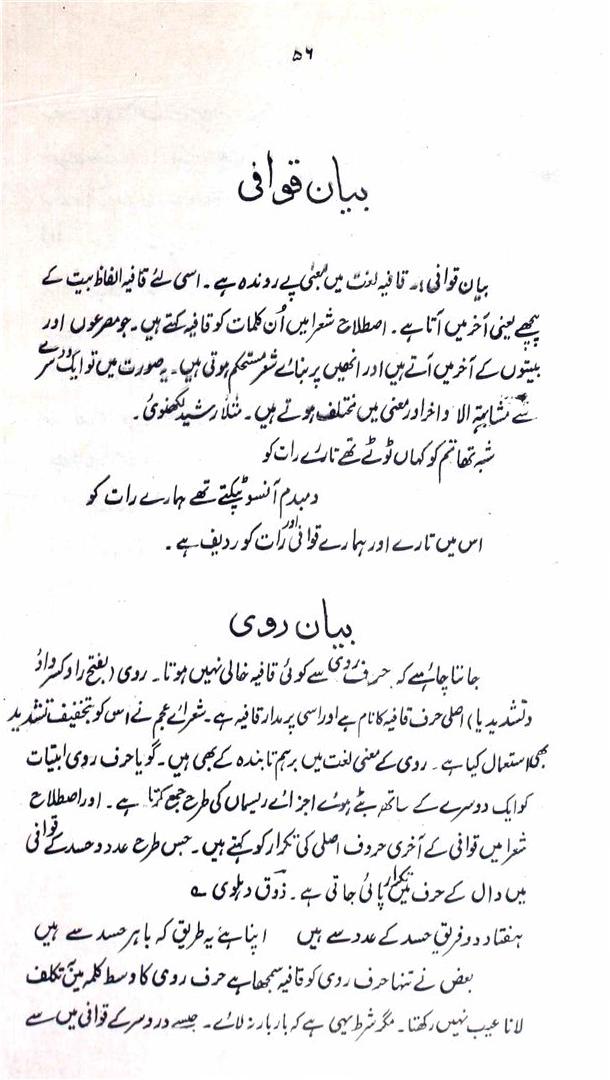 ۵۶
بیان قوافی
بیان قوافی :۔ قافیہ لغت میں بمعنیٰ پے روندہ ہے۔ اسی لئے قافیہ الفاظ بیت کے
پیچھے یعنی آخر میں آتا ہے۔ اصطلاح شعرا میں اُن کلمات کو قافیہ کہتے ہیں۔ جو مصرعوں اور
بیتوں کے آخر میں آتے ہیں اور انھیں پر بنائے شعر مستحکم ہوتی ہیں۔ یہ صورت میں تو ایک دوسرے
سے مشابہۃ الا واخر اور معنی میں مختلف ہوتے ہیں۔ مثلاً رشید لکھنوی۔
شبہ تھا تم کو کہاں ٹوٹے تھے تارے رات کو
دمبدم آنسو ٹپکتے تھے ہمارے رات کو
اس میں تارے اور ہمارے قوافی اور رات کو ردیف ہے۔
بیان روی
جاننا چاہئے کہ حرف روی سے کوئی قافیہ خالی نہیں ہوتا۔ روی (بفتح را و کسر واؤ
و تشدید یا) اصلی حرف قافیہ کا نام ہے اور اسی پر مدار قافیہ ہے۔ شعرائے عجم نے اس کو بتخفیف تشدید
بھی استعمال کیا ہے۔ روی کے معنی لغت میں برہم تابندہ کے بھی ہیں۔ گویا حرف روی ابتیات
کو ایک دوسرے کے ساتھ بٹے ہوئے اجزائے ریسماں کی طرح جمع کرتا ہے۔ اور اصطلاح
شعرا میں قوافی کے آخری حروف اصلی کی تکرار کو کہتے ہیں۔ جس طرح عدد و حسد کے قوافی
میں دال کے حرف میں تکرار پائی جاتی ہے۔ ذوق دہلوی ؎
ہفتاد دو فریق حسد کے عدد سے ہیں اپنا ہے یہ طریق کہ باہر حسد سے ہیں
بعض نے تنہا حرف روی کو قافیہ سمجھا ہے حرف روی کا وسط کلمہ میں بہ تکلف
لانا عیب نہیں رکھتا۔ مگر شرط یہی ہے کہ بار بار نہ لائے۔ جیسے در دسر کے قوافی میں سے